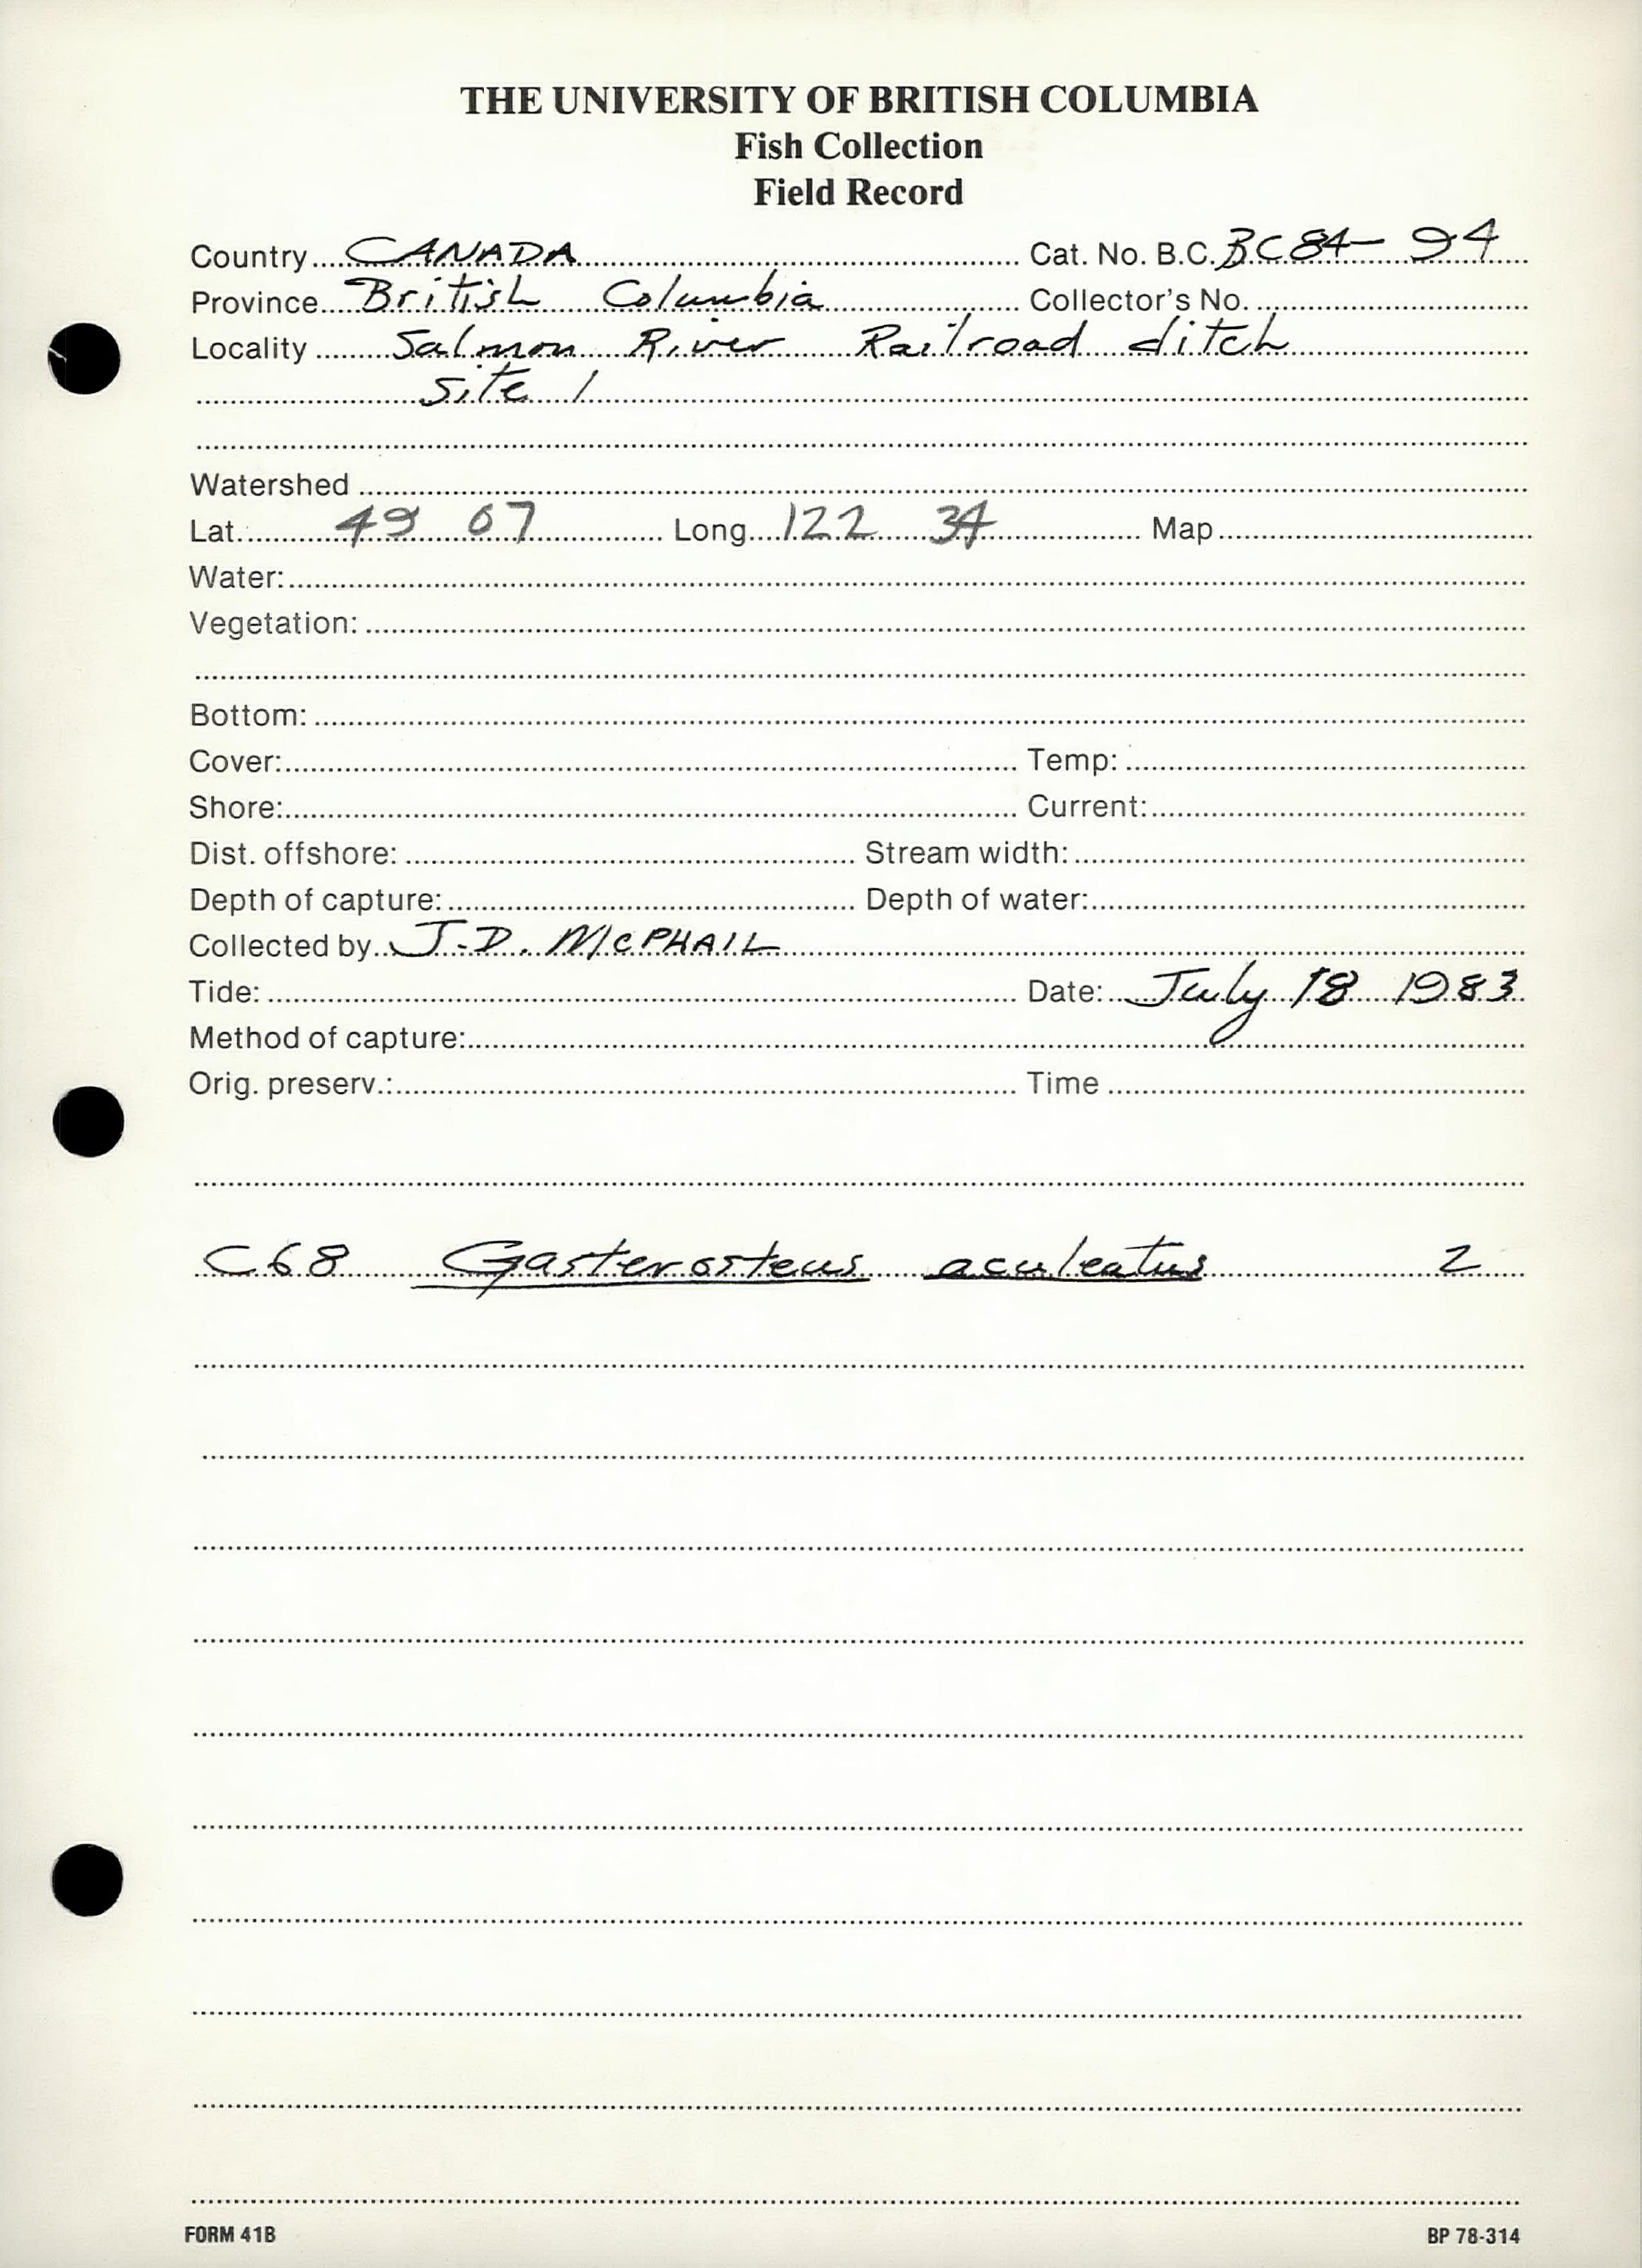 THE UNIVERSITY OF BRITISH COLUMBIA
Fish Collection
Field Record
Country CANADA Cat. No. B.C. BC84-94
Province British Columbia Collector's No.
Locality Salmon River Railroad ditch
site 1
Watershed
Lat. 49 07 Long. 122 34 Map
Water:
Vegetation:
Bottom:
Cover: Temp:
Shore: Current:
Dist. offshore: Stream width:
Depth of capture: Depth of water:
Collected by J.D. McPHAIL
Tide: Date: July 18 1983
Method of capture:
Orig. preserv.: Time
C68 Gasterosteus aculeatus 2
FORM 41B BP 78-314